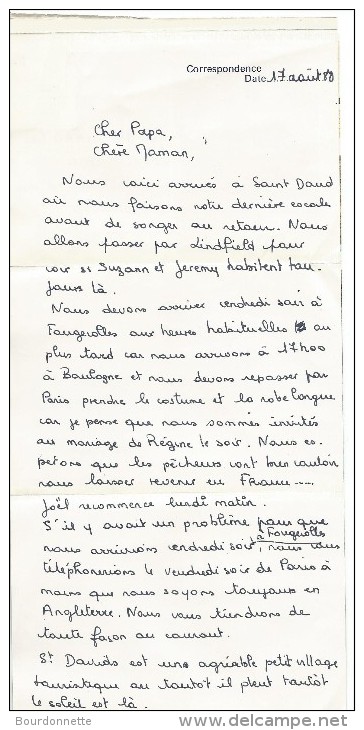 Correspondence
Date 17 août 80
Cher Papa,
Chère Maman,
Nous voici arrivés à Saint David
où nous faisons notre dernière escale
avant de songer au retour. Nous
allons passer par Lindfield pour
voir si Suzann et Jeremy habitent tou-
jours là.
Nous devons arriver vendredi soir à
Fougerolles aux heures habituelles au
plus tard car nous arrivons à 17h00
à Boulogne et nous devons repasser par
Paris prendre le costume et la robe longue
car je pense que nous sommes invités
au mariage de Régine le soir. Nous es-
pérons que les pêcheurs vont bien vouloir
nous laisser revenir en France .....
Joël recommence lundi matin.
S'il y avait un problème pour que
nous arrivions vendredi soir à Fougerolles, nous vous
téléphonerions le vendredi soir de Paris à
moins que nous soyons toujours en
Angleterre. Nous vous tiendrons de
toute façon au courant.
St Davids est un agréable petit village
touristique où tantôt il pleut tantôt
le soleil est là.
Bourdonnette
www.delcampe.net